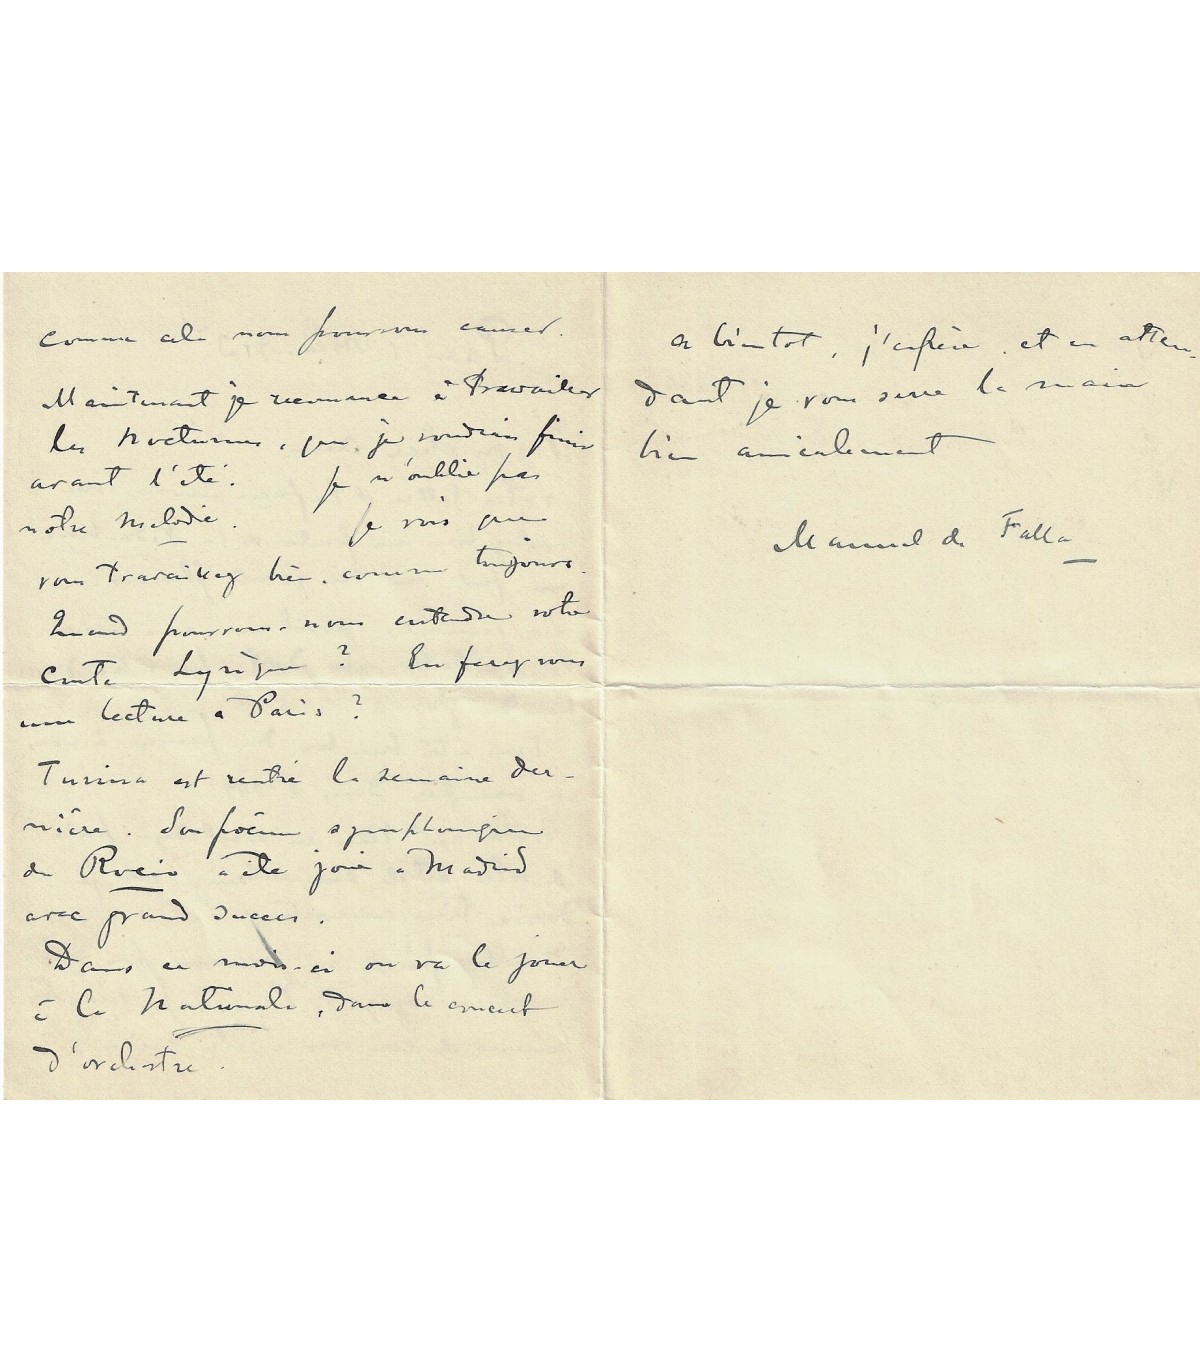 comme cela nous pourrons causer.
Maintenant je recommence à travailler
les Nocturnes, que je voudrais finir
avant l'été. Je n'oublie pas
notre Melodie. Je vois que
vous travaillez bien, comme toujours.
Quand pourrons-nous entendre votre
Conte Lyrique ? En ferez vous
une lecture a Paris ?
Turina est rentré la semaine der-
nière. Son poème symphonique
du Rocio a été joué a Madrid
avec grand succes.
Dans ce mois-ci on va le jouer
à la Nationale, dans le concert
d'orchestre.
A bientot, j'espère, et en atten-
dant je vous serre la main
bien amicalement
Manuel de Falla